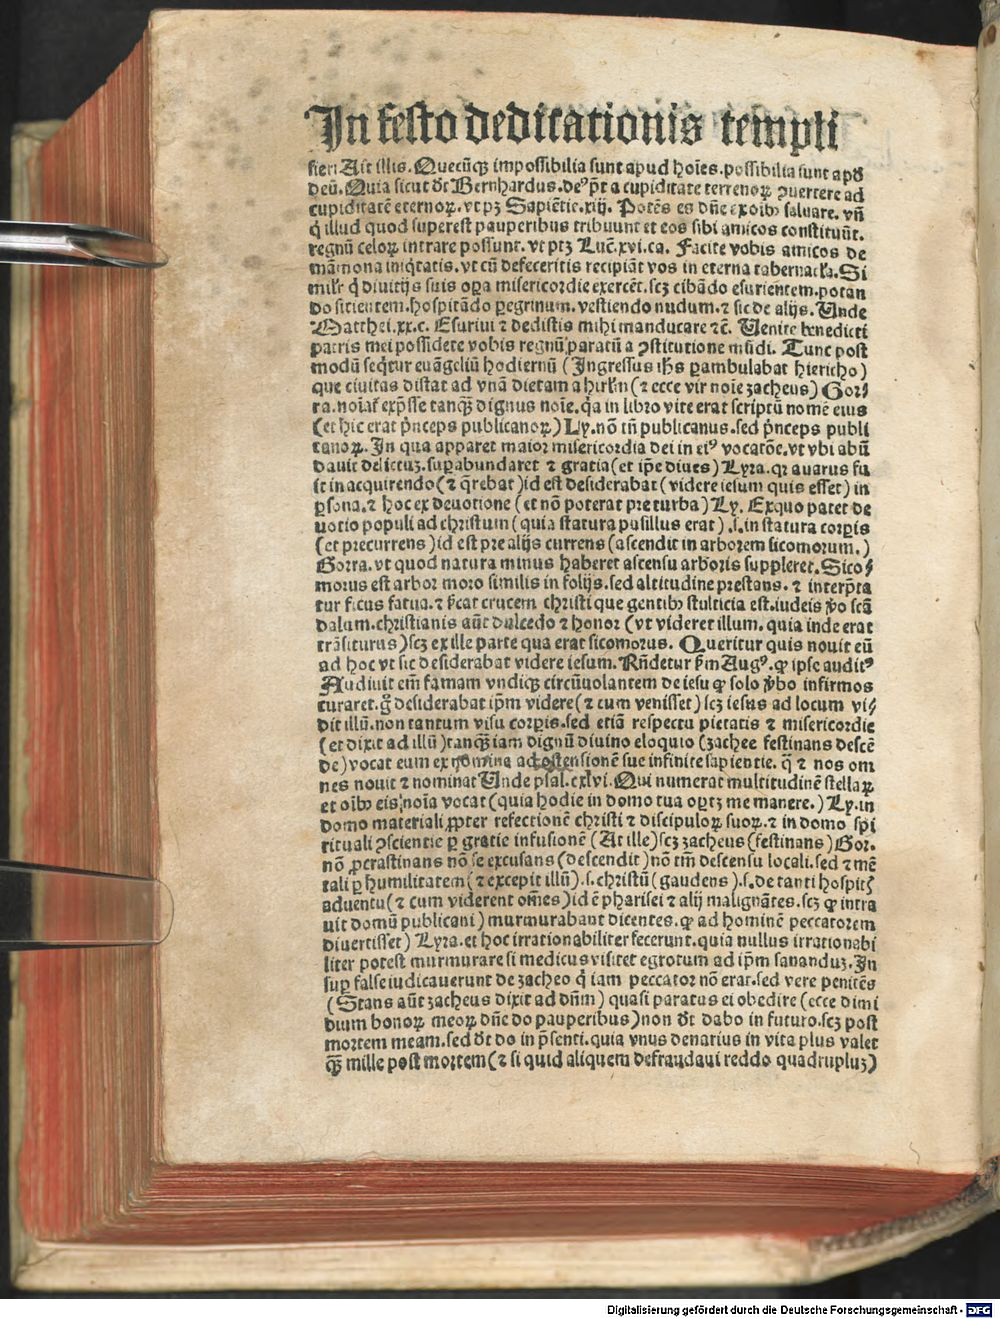 In festo dedicationis templi
fieri Ait illis. Quecūqꝫ impossibilia sunt apud hoīes. possibilia sunt apđ
deū. Quia sicut dt Bernhardus. deꝰ pt a cupiditate terrenoꝝ ꝯuertere ad
cupiditatē eternoꝝ. vt pꝫ Sapiētie. xiij. Potēs es dn̄e ex oībꝫ saluare. vn̄
q̄ illud quod superest pauperibus tribuunt et eos sibi amicos constituūt.
regnū celoꝝ intrare possunt. vt ptꝫ Luc̄. xvi. ca. Facite vobis amicos de
māmona iniq̄tatis. vt cū defeceritis recipiāt vos in eterna tabernacła. Si
milr̄ q̄ diuitijs suis oꝑa misericordie exercēt. scꝫ cibādo esurientem. potan
do sitientem. hospitādo ꝑegrinum. vestiendo nudum. ⁊ sic de alijs. Unde
Matthei. xx. c. Esuriui ⁊ dedistis mihi manducare ⁊c̄. Uenite benedicti
patris mei possidete vobis regnū paratū a ꝯstitutione mūdi. Tunc post
modū seq̄tur euāgeliū hodiernū (Ingressus ihs̄ ꝑambulabat hiericho)
que ciuitas distat ad vnā dietam a hirłm (⁊ ecce vir noīe zacheus) Gor⸗
ra. noīat̄ exp̄sse tanqꝫ dignus noīe. q̄a in libro vite erat scriptū nomē eius
(et hic erat p̄nceps publicanoꝝ) Ly. nō tn̄ publicanus. sed p̄nceps publi
canoꝝ. In qua apparet maior misericordia dei in eiꝰ vocatōe. vt vbi abū
dauit delictuꝫ. suꝑabundaret ⁊ gratia (et ip̄e diues) Lyra. qꝛ auarus fu
it in acquirendo (⁊ q̄rebat) id est desiderabat (videre iesum quis esset) in
ꝑsona. ⁊ hoc ex deuotione (et nō poterat pre turba) Ly. Ex quo patet de
uotio populi ad christum (quia statura pusillus erat) .s. in statura corꝑis
(et precurrens) id est pre alijs currens (ascendit in arborem sicomorum.)
Gorra. vt quod natura minus haberet ascensu arboris suppleret. Sico⸗
morus est arbor moro similis in folijs. sed altitudine prestans. ⁊ interp̄ta
tur ficus fatua. ⁊ sc̄at crucem christi que gentibꝫ stulticia est. iudeis v̄o scā
dalum. christianis aūt dulcedo ⁊ honor (vt videret illum. quia inde erat
trāsiturus) scꝫ ex ille parte qua erat sicomorus. Queritur quis nouit eū
ad hoc vt sic desiderabat videre iesum. Rn̄detur s̄m Augꝰ. ꝙ ipse auditꝰ
Audiuit em̄ famam vndiqꝫ circūuolantem de iesu ꝙ solo v̄bo infirmos
curaret. gͦ desiderabat ip̄m videre (⁊ cum venisset) scꝫ iesus ad locum vi⸗
dit illū. non tantum visu corꝑis. sed etiā respectu pietatis ⁊ misericordie
(et dixit ad illū) tanqꝫ iam dignū diuino eloquio (zachee festinans descē
de) vocat eum ex nomine ad ostensionē sue infinite sapientie. q̄ ⁊ nos om
nes nouit ⁊ nominat Unde psal. cxlvi. Qui numerat multitudinē stellaꝝ
et oībꝫ eis noīa vocat (quia hodie in domo tua oꝑtꝫ me manere.) Ly. in
domo materiali ꝓpter refectionē christi ⁊ discipuloꝝ suoꝝ. ⁊ in domo sp̄i
rituali ꝯscientie ꝑ gratie infusionē (At ille) scꝫ zacheus (festinans) Gor.
nō ꝓcrastinans nō se excusans (descendit) nō tm̄ descensu locali. sed ⁊ mē
tali ꝑ humilitatem (⁊ excepit illū) .s. christū (gaudens) .s. de tanti hospit⸗
aduentu (⁊ cum viderent om̄es) id ē pharisei ⁊ alij malignātes. scꝫ ꝙ intra
uit domū publicani) murmurabant dicentes. ꝙ ad hominē peccatorem
diuertisset) Lyra. et hoc irrationabiliter fecerunt. quia nullus irrationabi
liter potest murmurare si medicus visitet egrotum ad ip̄m sananduꝫ. In
suꝑ false iudicauerunt de zacheo q̄ iam peccator nō erat. sed vere penitēs
(Stans aūt zacheus dixit ad dn̄m) quasi paratus ei obedire (ecce dimi
dium bonoꝝ meoꝝ dn̄e do pauperibus) non dt dabo in futuro. scꝫ post
mortem meam. sed dt do in p̄senti. quia vnus denarius in vita plus valet
qꝫ mille post mortem (⁊ si quid aliquem defraudaui reddo quadrupluꝫ)
Digitalisierung gefördert durch die Deutsche Forschungsgemeinschaft - DFG